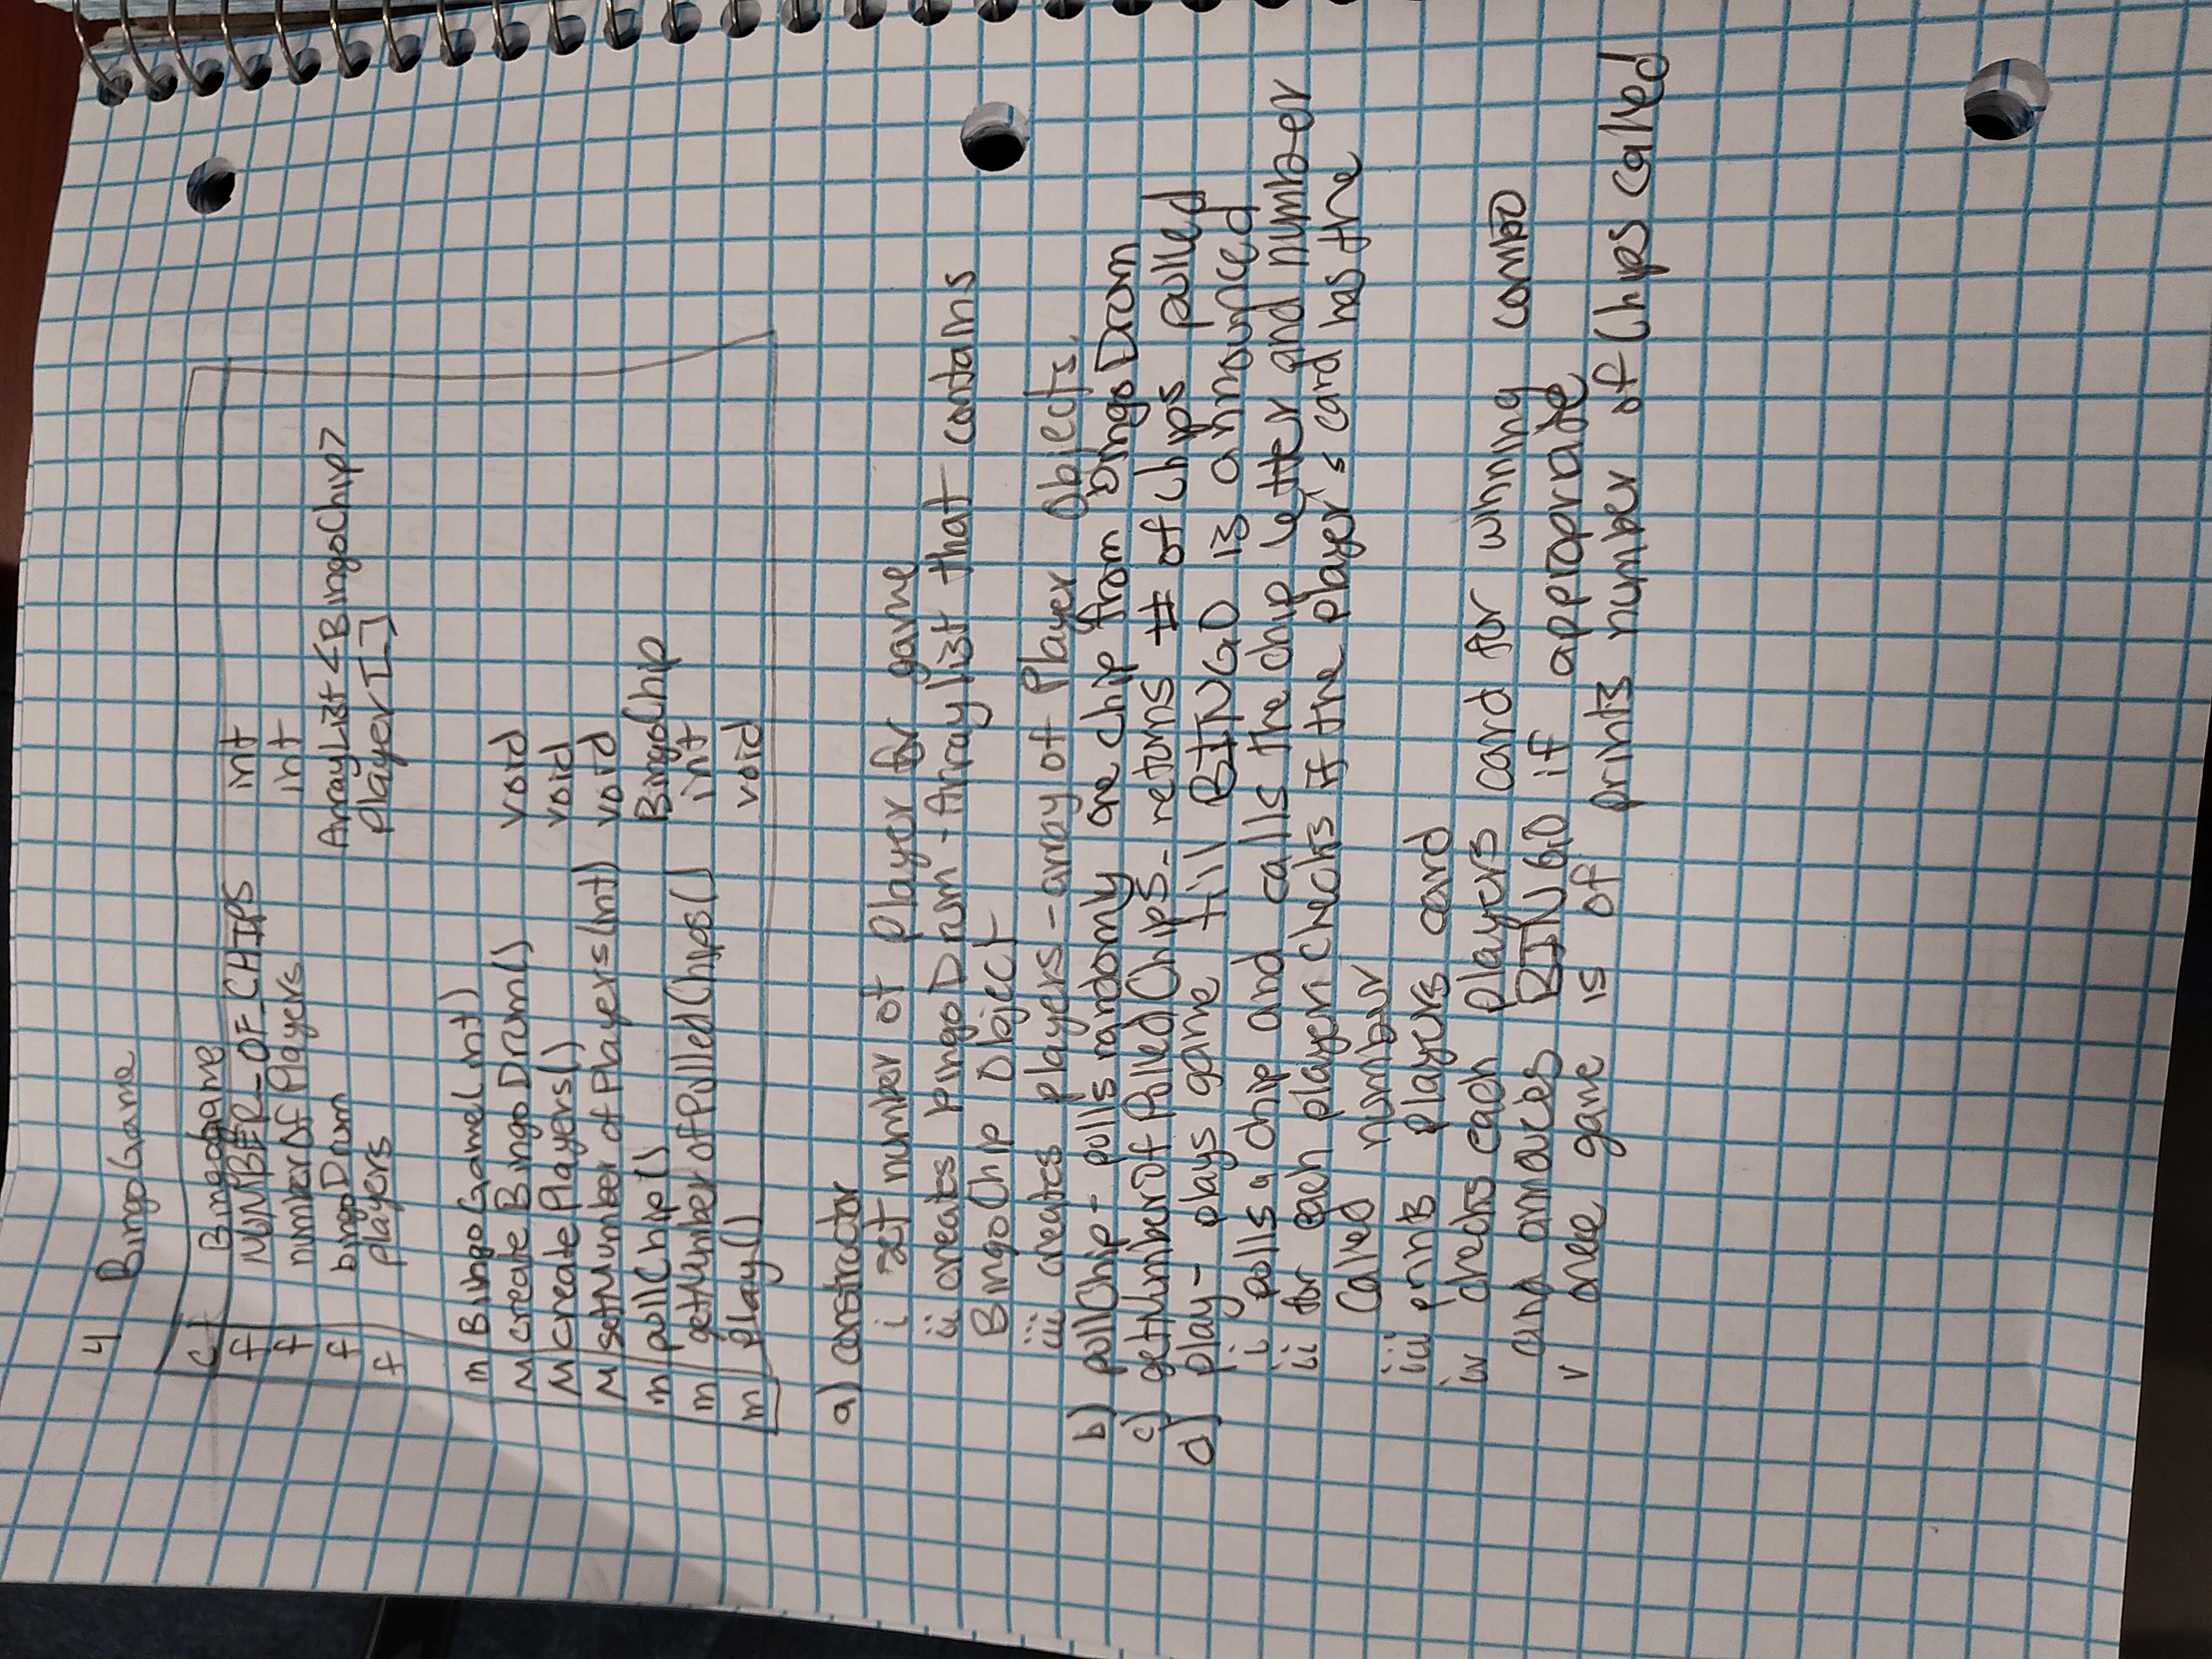 4 BingoGame
c Bingogame
f NUMBER_OF_CHIPS int
f numberOfPlayers int
f bingoDrum ArrayList<BingoChip>
f players Player[]
m BingoGame(int)
M createBingoDrum() void
M createPlayers() void
M setNumberofPlayers(int) void
m pullChip() BingoChip
m getNumberofPulledChips() int
m play() void
a) constructor
i set number of Player for game
ii creates bingoDrum - Arraylist that contains
BingoChip Object
iii creates players - array of Player Objects.
b) pullChip - pulls randomly one chip from bingoDrum
c) getNumberOfPulledChips - returns # of chips pulled
d) play - plays game till BINGO is announced
i pulls a chip and calls the chip letter and number
ii for each player, checks if the player's card has the
called number
iii prints players card
iv checks each players card for winning combo
and annouces BINGO if approprate
v once game is of prints number of Chips called